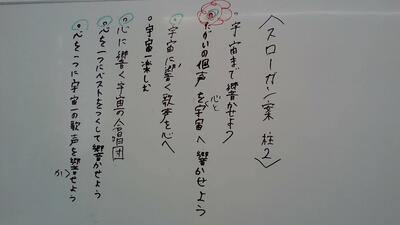 〈スローガン案 柱2〉
・宇宙まで響かせよう
たがいの個声を宇宙へ響かせよう
心と
・宇宙に響く歌声を心へ
・宇宙一楽しむ
・心に響く宇宙の合唱団
・心を一つにベストをつくして響かせよう
・心を一つに宇宙一の歌声を響せよう
か